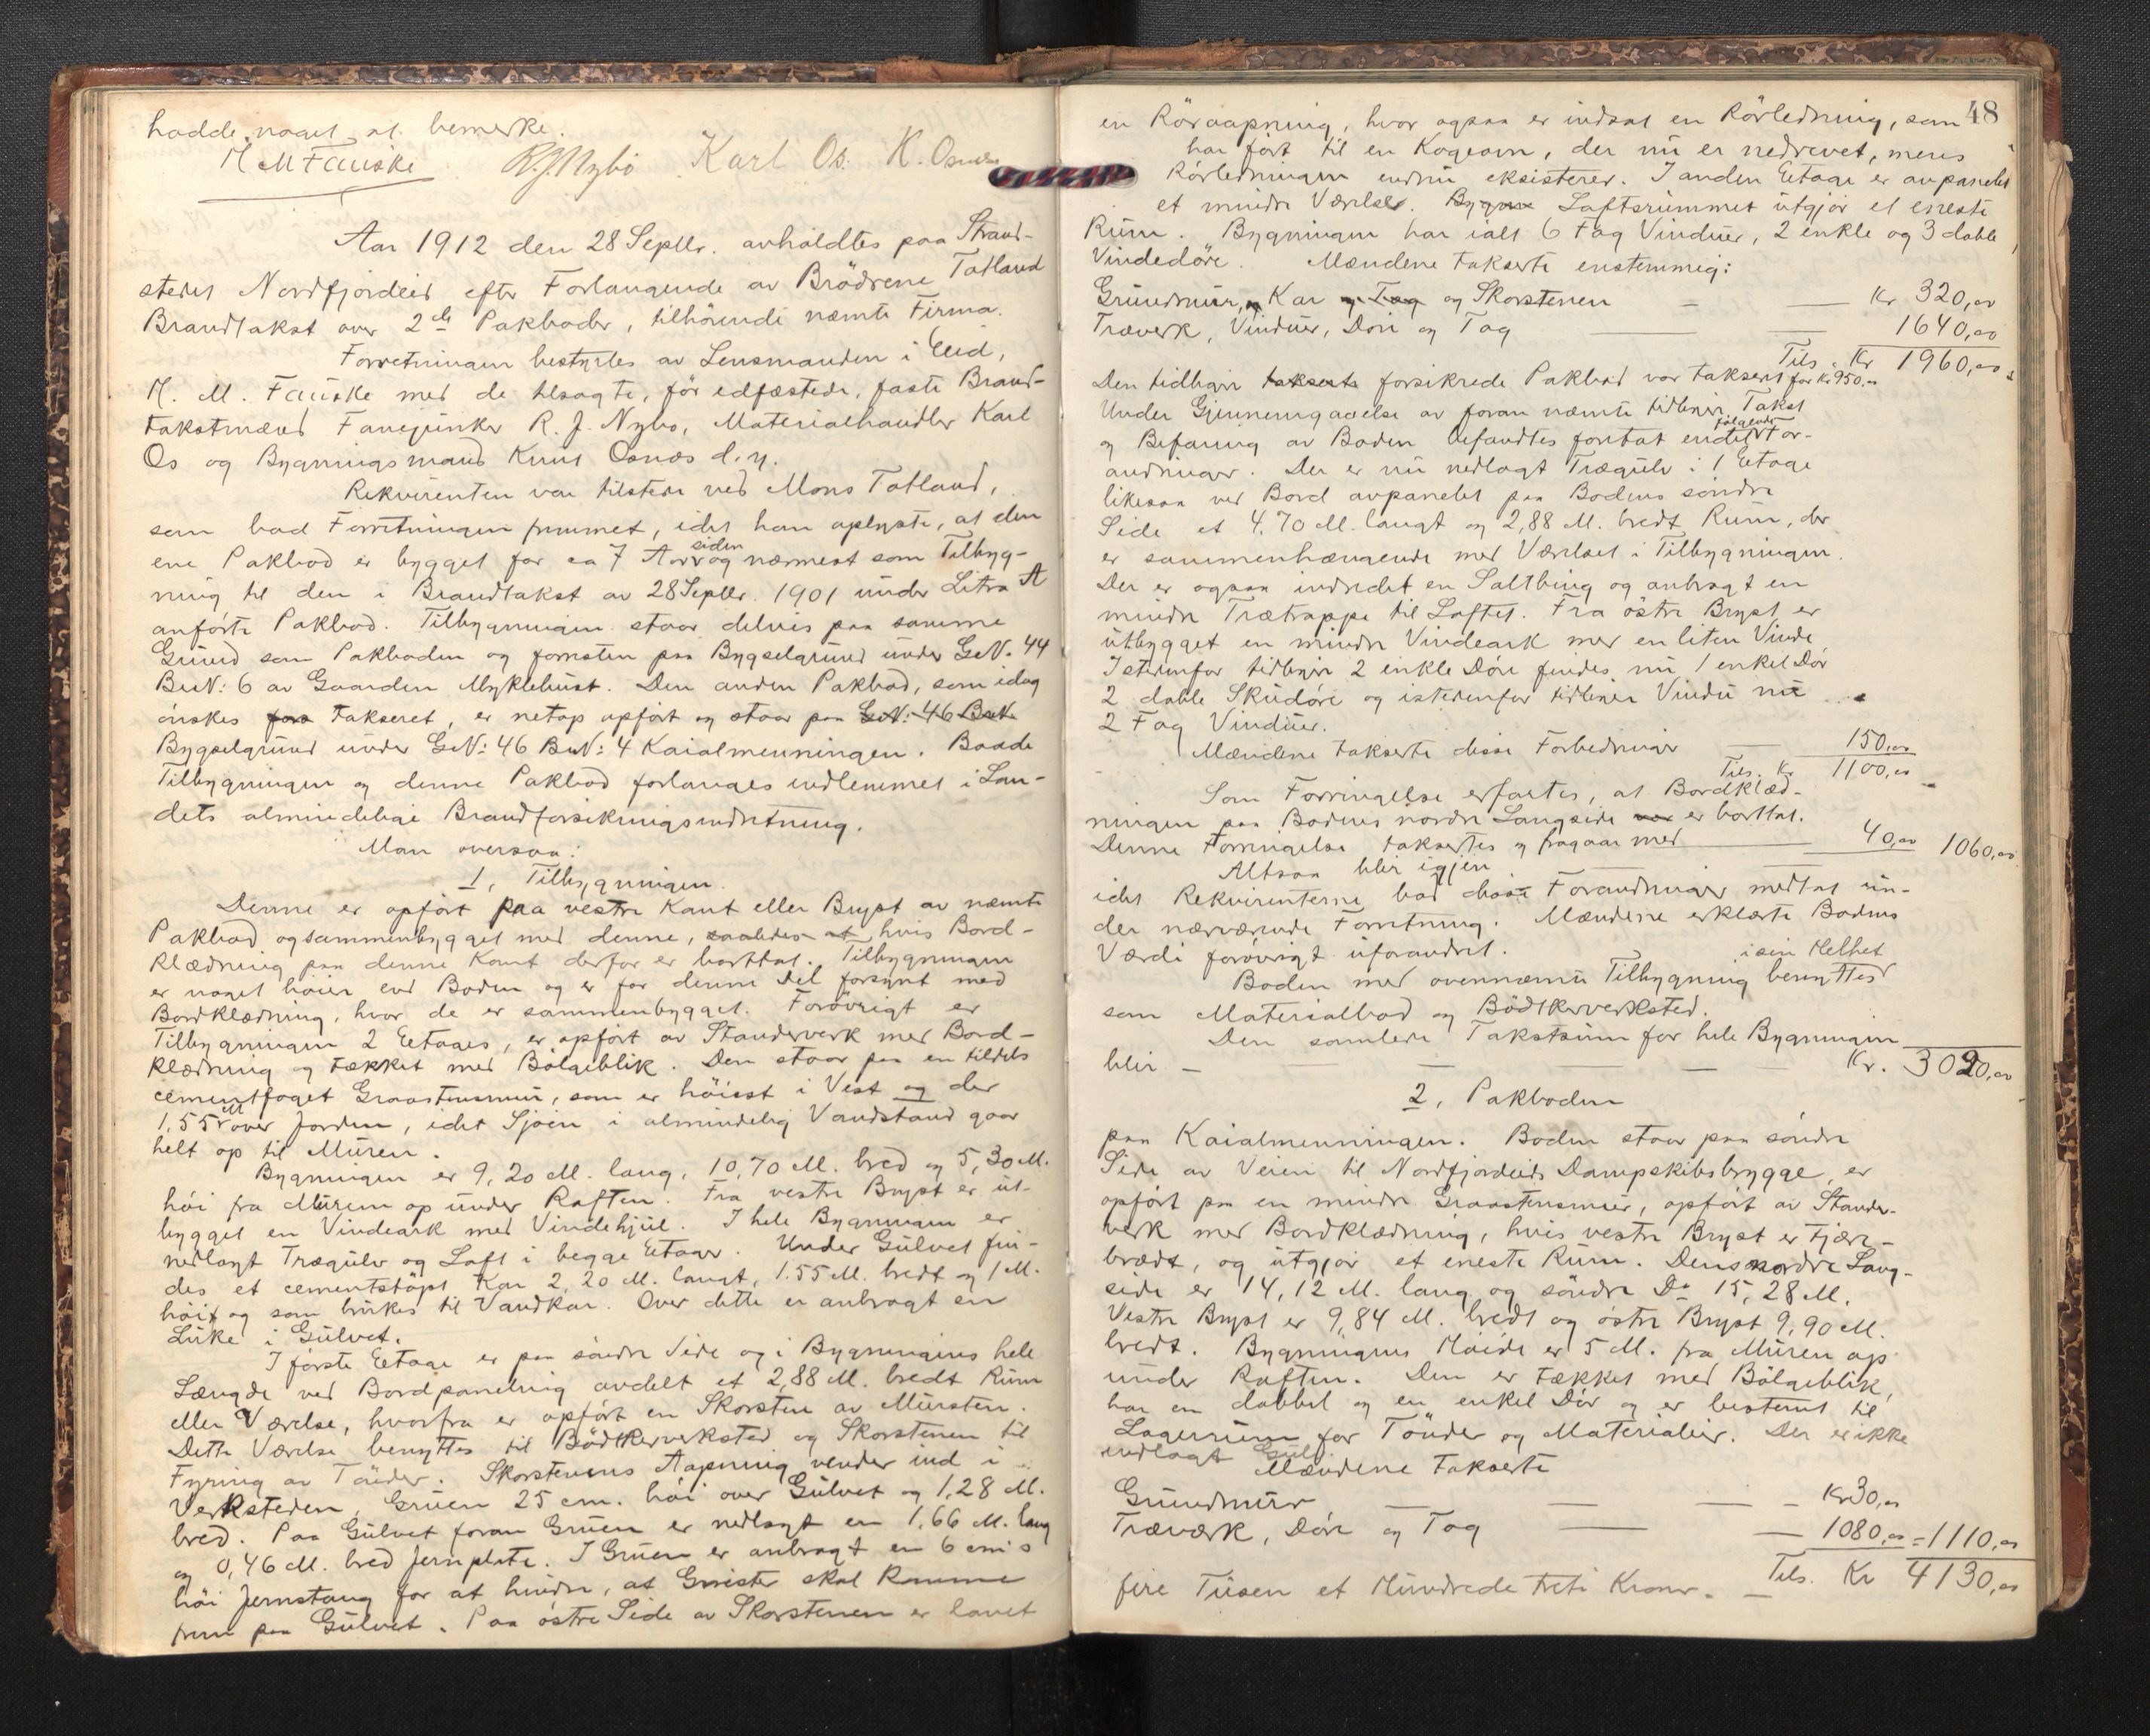 hadde noget at bemerke.
H M Fauske R. J. Nybö Karl Os. K. Osnes
Aar 1912 den 28 Septbr. avholdtes paa Strand-
stedet Nordfjordeid efter Forlangende av Brödrene Totland
Brandtakst over 2de Pakboder, tilhörende nævnte Firma.
Forretningen bestyrtes av Lensmanden i Eid,
H. M. Fauske med de tilsagte, för edfæstede, faste Brand-
takstmænd Fanejunker R. J. Nybo, Materialhandler Karl
Os og Bygningsmand Knut Osnæs d. y.
Rekvirenten var tilstede ved Mons Totland,
som bad Forretningen fremmet, idet han oplyste, at den
ene Pakbod er bygget for ca 7 Aar siden og nærmest som Tilbyg-
ning til den i Brandtakst av 28 Septbr. 1901 under Litra A
anförte Pakbod. Tilbygningen staar delvis paa samme
Grund som Pakboden og forresten paa Bygselgrund under GrN. 44
BruN: 6 av Gaarden Myklebust. Den anden Pakbod, som idag
önskes for takseret, er netop opfört og staar paa GrN: 46 BruN
Bygselgrund under GrN: 46 BruN: 4 Kaialmenningen. Baade
Tilbygningen og denne Pakbod forlanges indlemmet i Lan-
dets almindelige Brandforsikringsindretning.
Man oversaa:
1, Tilbygningen.
Denne er opfört paa vestre Kant eller Bryst av nævnte
Pakbod og sammenbygget med denne, saaledes at hvis Bord-
klædning paa denne Kant derfor er borttat. Tilbygningen
er noget höier end Boden og er for denne Del forsynt med
Bordklædning, hvor de er sammenbygget. Forövrigt er
Tilbygningen 2 Etages, er opfört av Standerverk med Bord-
klædning og tækket med Bölgeblik. Den staar paa en tildels
cementfoget Graastensmur, som er höiest i Vest og der
1,55 M over Jorden, idet Sjöen i almindelig Vandstand gaar
helt op til Muren.
Bygningen er 9,20 M. lang, 10,70 M. bred og 5,30 M.
höi fra Muren op under Raften. Fra vestre Bryst er ut-
bygget en Vindeark med Vindehjul. I hele Bygningen er
nedlagt Trægulv og Loft i begge Etager. Under Gulvet fin-
des et cementstöpt Kar 2,20 M. langt, 1.55 M. bredt og 1 M.
höit og som brukes til Vandkar. Over dette er anbragt en
Luke i Gulvet.
I förste Etage er paa söndre Side og i Bygningens hele
Længde ved Bordpanelning avdelt et 2,88 M. bredt Rum
eller Værelse, hvorfra er opfört en Skorsten av Mursten.
Dette Værelse benyttes til Bödtkerverksted og Skorstenen til
Fyring av Tönder. Skorstenens Aapning vender ind i
Verksteden, Gruen 25 cm. höi over Gulvet og 1,28 M.
bred. Paa Gulvet foran Gruen er nedlagt en 1,66 M. lang
og 0,46 M. bred Jernplate. I Gruen er anbragt en 6 cm's
höi Jernstang for at hindre, at Gnister skal komme
frem paa Gulvet. Paa östre Side av Skorstenen er lavet
48
en Röraapning, hvor ogsaa er indsat en Rörledning, som
har fört til en Kogeovn, der nu er nedrevet, mens
Rörledningen endnu eksisterer. I anden Etage er avpanelet
et mindre Værelse. Loftsrummet utgjör et eneste
Rum. Bygningen har ialt 6 Fag Vinduer, 2 enkle og 3 doble
Vindedöre. Mændene takserte enstemmig:
Grundmur, og Kar og Tag og Skorstenen — Kr 320,00
Træverk, Vinduer, Döre og Tag — 1640,00
Tils. Kr 1960,00
Den tidligere takserte forsikrede Pakbod var takseret for Kr 950.00
Under Gjennemgaaelse av foran nævnte tidligere Takst
og Befaring av Boden befandtes foretat endel følgende For-
andringer. Der er nu nedlagt Trægulv i 1 Etage
likesaa ved Bord avpanelet paa Bodens söndre
Side et 4.70 M. langt og 2,88 M. bredt Rum, der
er sammenhængende med Værelset i Tilbygningen.
Der er ogsaa indredet en Saltbing og anbragt en
mindre Trætrappe til Loftet. Fra östre Bryst er
utbygget en mindre Vindeark med en liten Vinde
Istedenfor tidligere 2 enkle Döre findes nu 1 enkel Dör
2 doble Skudöre og istedenfor tidligere Vindu nu
2 Fag Vinduer.
Mændene takserte disse Forbedringer — 150,00
Tils. Kr 1100,00
Som Forringelse erfartes, at Bordklæd-
ningen paa Bodens nordre Langside var er borttat.
Denne Forringelse taksertes og fragaar med — 40,00
Altsaa blir igjen — 1060,00
idet Rekvirenterne bad disse Forandringer medtat un-
der nærværende Forretning. Mændene erklærte Bodens
Værdi forövrigt uforandret.
Boden med ovennævnte Tilbygning benyttes i sin Helhet
som Materialbod og Bödtkerverksted.
Den samlede Takstsum for hele Bygningen
blir — Kr. 3020,00
2, Pakboden
paa Kaialmenningen. Boden staar paa söndre
Side av Veien til Nordfjordeids Dampskibsbrygge, er
opfört paa en mindre Graastensmur, opfört av Stander-
verk med Bordklædning, hvis vestre Bryst er Fjære-
brædt, og utgjör et eneste Rum. Dens nordre Lang-
side er 14,12 M. lang og söndre Do 15,28 M.
Vestre Bryst er 9,84 M. bredt og östre Bryst 9,90 M.
bredt. Bygningens Höide er 5 M. fra Muren op
under Raften. Den er tækket med Bölgeblik,
har en dobbel og en enkel Dör og er bestemt til
Lagerrum for Tönder og Materialier. Der er ikke
indlagt Gulv.
Mændene takserte
Grundmur — Kr 30,00
Træværk, Döre og Tag — 1080,00 = 1110,00
Tils. Kr 4130,00
fire Tusen et Hundrede treti Kroner. —